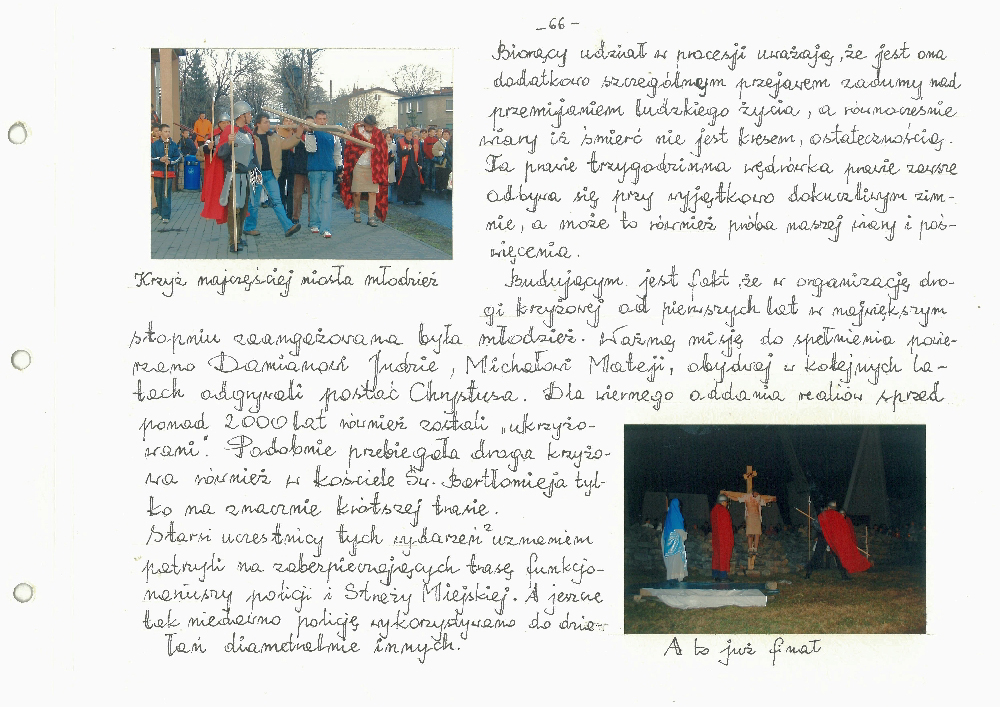 - 66 -
Biorący udział w procesji uważają, że jest ona
dodatkowo szczególnym przejawem zadumy nad
przemijaniem ludzkiego życia, a równocześnie
wiary iż śmierć nie jest kresem, ostatecznością.
Ta prawie trzygodzinna wędrówka prawie zawsze
odbywa się przy wyjątkowo dokuczliwym zim-
nie, a może to również próba naszej wiary i poś-
więcenia.
Krzyż najczęściej niosła młodzież
Budującym jest fakt, że w organizację dro-
gi krzyżowej od pierwszych lat w największym
stopniu zaangażowana była młodzież. Ważną misję do spełnienia powie-
rzano Damianowi Judzie, Michałowi Mateji, obydwaj w kolejnych la-
tach odgrywali postać Chrystusa. Dla wiernego oddania realiów sprzed
ponad 2000 lat również zostali „ukrzyżo-
wani". Podobnie przebiegała droga krzyżo-
wa również w kościele Św. Bartłomieja tyl-
ko na znacznie krótszej trasie.
Starsi uczestnicy tych wydarzeń z uznaniem
patrzyli na zabezpieczających trasę funkcjo-
nariuszy policji i Straży Miejskiej. A jeszcze
tak niedawno policję wykorzystywano do dzia-
łań diametralnie innych.
A to już finał